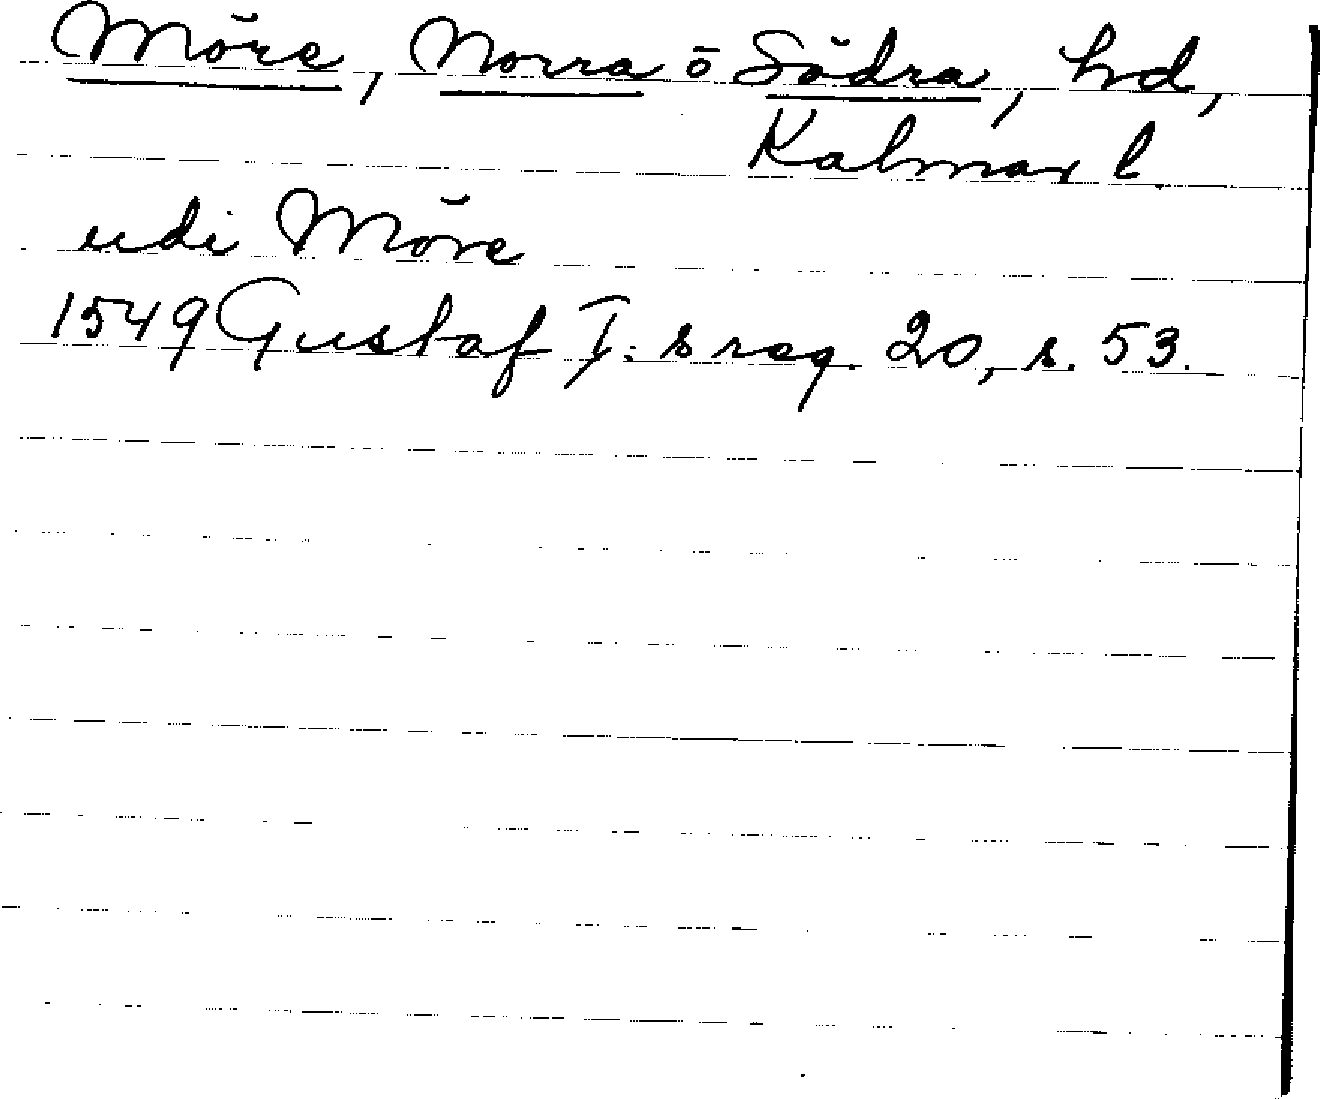 Möre, Norra o Södra, hd,
Kalmar l
udi Möre
1549 Gustaf I:s reg. 20, s. 53.